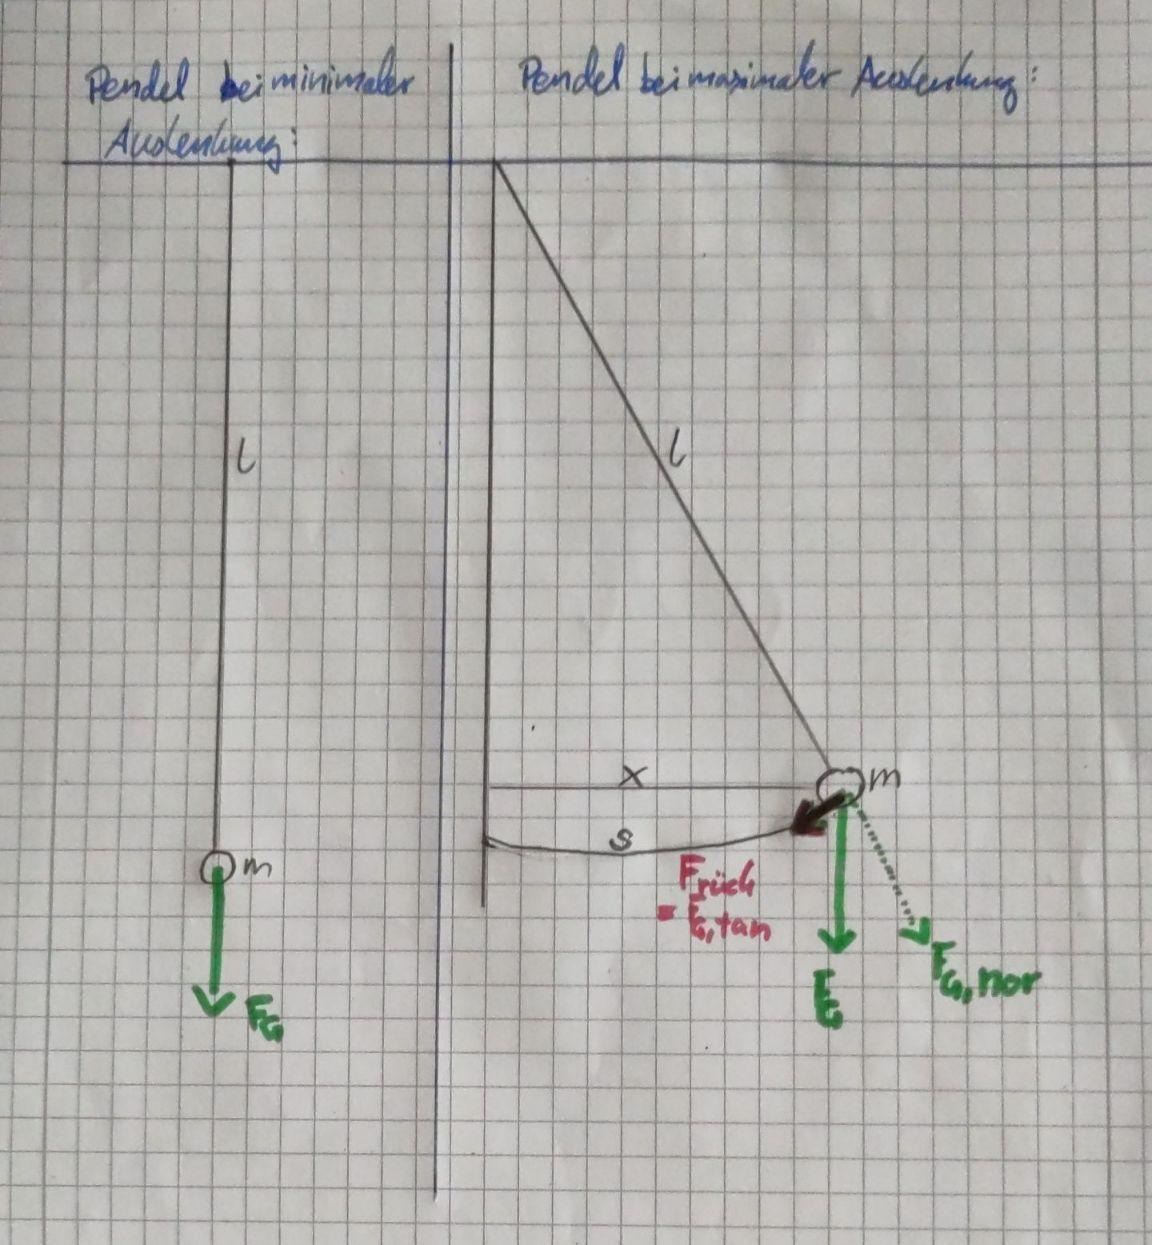 Pendel bei minimaler
Auslenkung:
Pendel bei maximaler Auslenkung:
l
m
F_G
l
x
m
s
F_rück
= F_G,tan
F_G
F_G,nor